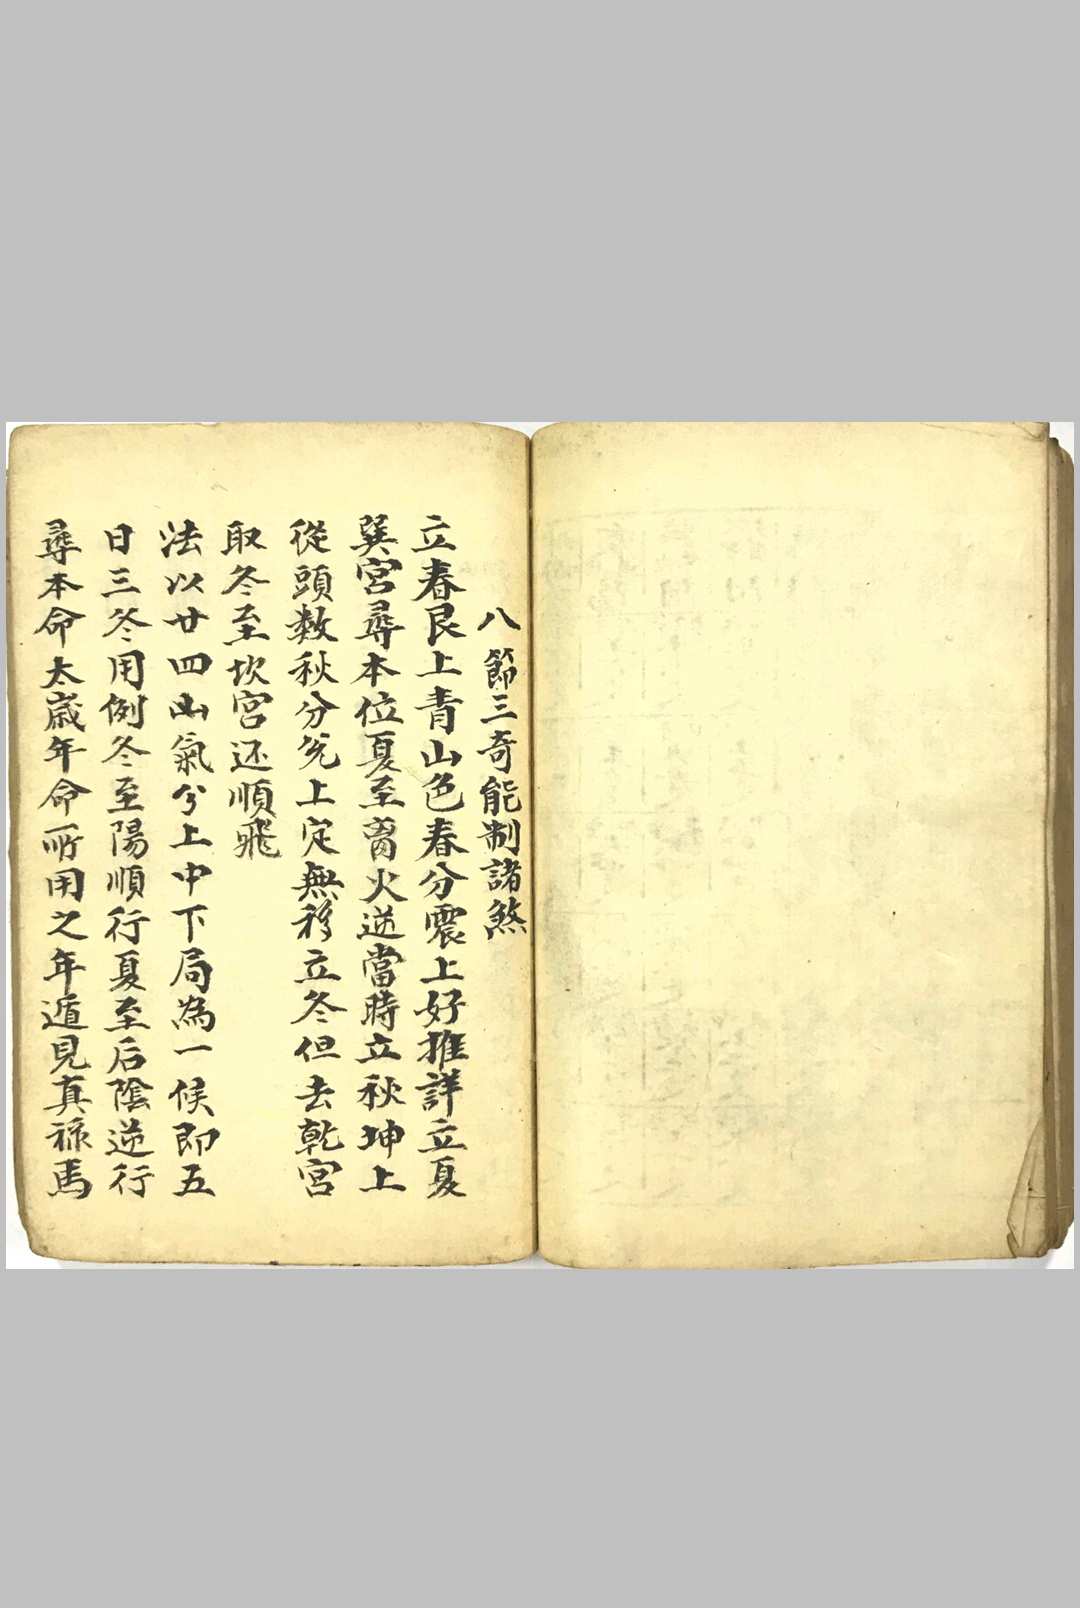 八節三奇能制諸煞
立春艮上青山色春分震上好推詳立夏
巽宮尋本位夏至离火逆當時立秋坤上
從頭数秋分兌上定無移立冬但去乾宮
取冬至坎宮还順飛
法以廿四山氣分上中下局為一候即五
日三冬用例冬至陽順行夏至后陰逆行
尋本命太歲年命所用之年遁見真祿馬